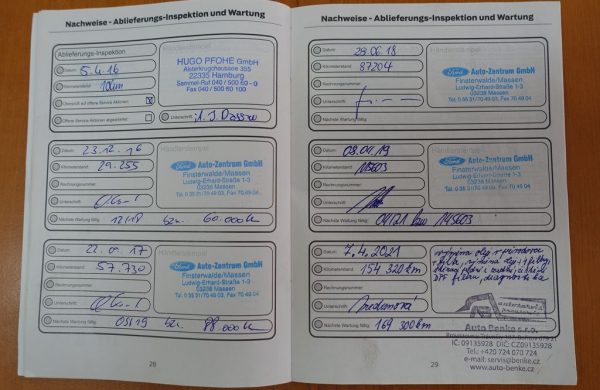 Nachweise - Ablieferungs-Inspektion und Wartung
Ablieferungs-Inspektion
Datum: 5.4.16
Kilometerstand: 10km
Überprüft auf offene Service Aktionen
Offene Service Aktionen abgearbeitet
Händlerstempel
HUGO PFOHE GmbH
Alsterkrugchaussee 355
22335 Hamburg
Sammel-Ruf 040 / 500 60 - 0
Fax 040 / 500 60 100
Unterschrift:
Datum: 23.12.16
Kilometerstand: 29.255
Rechnungsnummer:
Unterschrift:
Nächste Wartung fällig: 12/18 bzw. 60.000km
Händlerstempel
Ford Auto-Zentrum GmbH
Finsterwalde/Massen
Ludwig-Erhard-Straße 1-3
03238 Massen
Tel. 0 35 31/70 49 03, Fax 70 49 04
Datum: 22.09.17
Kilometerstand: 57.730
Rechnungsnummer:
Unterschrift:
Nächste Wartung fällig: 09/19 bzw. 88 000km
Händlerstempel
Ford Auto-Zentrum GmbH
Finsterwalde/Massen
Ludwig-Erhard-Straße 1-3
03238 Massen
Tel. 0 35 31/70 49 03, Fax 70 49 04
28
Nachweise - Ablieferungs-Inspektion und Wartung
Datum: 28.06.18
Kilometerstand: 87204
Rechnungsnummer:
Unterschrift:
Nächste Wartung fällig:
Händlerstempel
Ford Auto-Zentrum GmbH
Finsterwalde/Massen
Ludwig-Erhard-Straße 1-3
03238 Massen
Tel. 0 35 31/70 49 03, Fax 70 49 04
Datum: 08.04.19
Kilometerstand: 115603
Rechnungsnummer:
Unterschrift:
Nächste Wartung fällig: 04/21 bzw 145603
Ford Auto-Zentrum GmbH
Finsterwalde/Massen
Ludwig-Erhard-Straße 1-3
03238 Massen
Tel. 0 35 31/70 49 03, Fax 70 49 04
Datum: 7.4.2021
Kilometerstand: 154 320km
Rechnungsnummer:
Unterschrift:
Nächste Wartung fällig: 169 300km
DPF filtru, diagnostika
Auto Benke s.r.o.
IČ: 09135928 DIČ: CZ09135928
Tel.: +420 724 070 724
e-mail: servis@benke.cz
www.auto-benke.cz
29